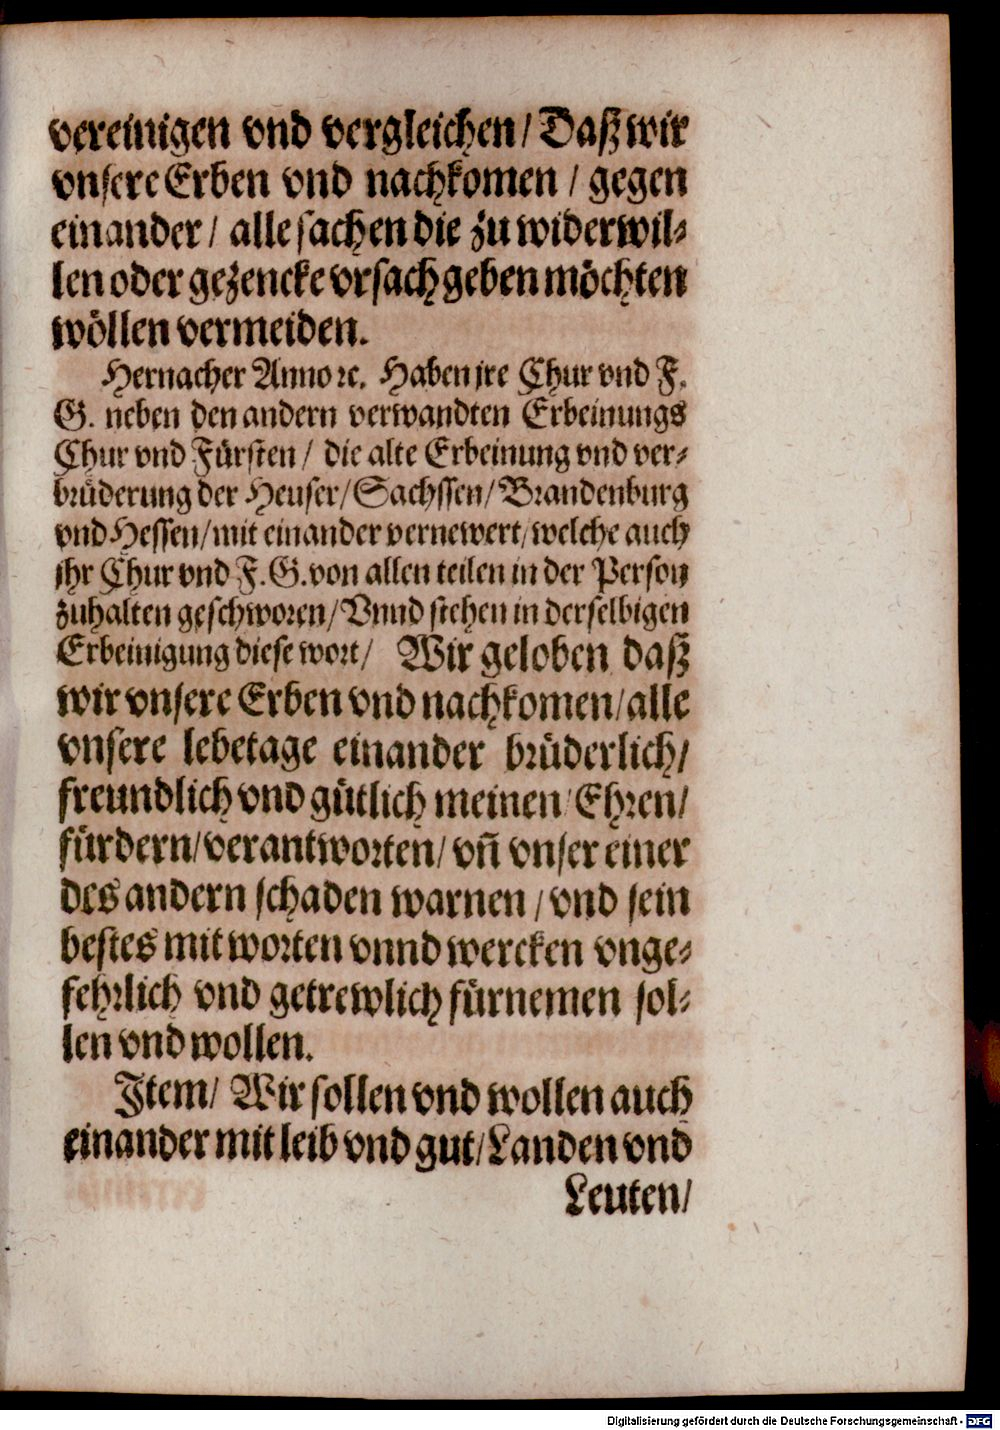 vereinigen vnd vergleichen / Daß wir
vnsere Erben vnd nachkomen / gegen
einander / alle sachen die zu widerwil⸗
len oder gezencke vrsach geben möchten
wöllen vermeiden.
Hernacher Anno ꝛc. Haben jre Chur vnd F.
G. neben den andern verwandten Erbeinungs
Chur vnd Fürsten / die alte Erbeinung vnd ver⸗
brüderung der Heuser / Sachssen / Brandenburg
vnd Hessen / mit einander vernewert / welche auch
jhr Chur vnd F. G. von allen teilen in der Person
zuhalten geschworen / Vnnd stehen in derselbigen
Erbeinigung diese wort / Wir geloben daß
wir vnsere Erben vnd nachkomen / alle
vnsere lebetage einander brüderlich /
freundlich vnd gütlich meinen / Ehren /
fürdern / verantworten / vn̄ vnser einer
des andern schaden warnen / vnd sein
bestes mit worten vnnd wercken vnge⸗
fehrlich vnd getrewlich fürnemen sol⸗
len vnd wollen.
Item / Wir sollen vnd wollen auch
einander mit leib vnd gut / Landen vnd
Leuten /
Digitalisierung gefördert durch die Deutsche Forschungsgemeinschaft - DFG